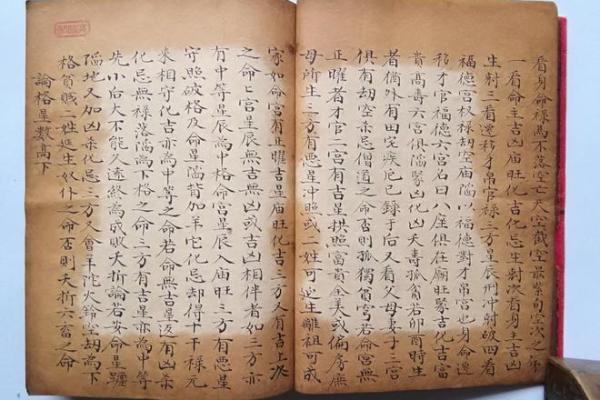 看身命祿馬不落空亡天空截空最紧旬空次之第
一看命主吉凶庙旺化吉化忌生尅次看身主吉凶
生尅二看遷移才帛官禄三方星辰刑冲尅破四看
福德宮权禄刼空庙陥以福德對才帛宮也身命遷
移才官福德六宮名曰八座俱在廟旺聚吉化吉富
貴高壽六宮俱陥聚凶化凶夭壽孤貧若卯酉時生
者犹外有田宅疾厄已錄于后又看父母妻子三宮
俱有刼空杀忌僧道之命否則孤獨貧穷若命宮無
正曜者才官二宮有吉星拱照富貴全美或偏房庶
母所生三方有悪星冲照或二姓可延生離祖可成
家如命宮有正曜吉星庙旺化吉三方又有吉上次
之命ヒ宮星辰無吉無凶或吉凶相伴者如三方亦
有中等星辰為中格命宮星辰入庙旺三方有悪星
守照破格及命星陥背加羊它化忌却得干千禄元
來相守化吉亦為中等之命若命無吉星返有凶杀
化忌無禄落陥為下格之命三方有吉星亦為中等
先小后大不能久遠終為成敗夭折論若安命星躔
陥地又加凶杀化忌三方又會羊陀火鈴空刼為下
格貧贱二姓延生奴仆之命否則夭折六畜之命
論格星数高下